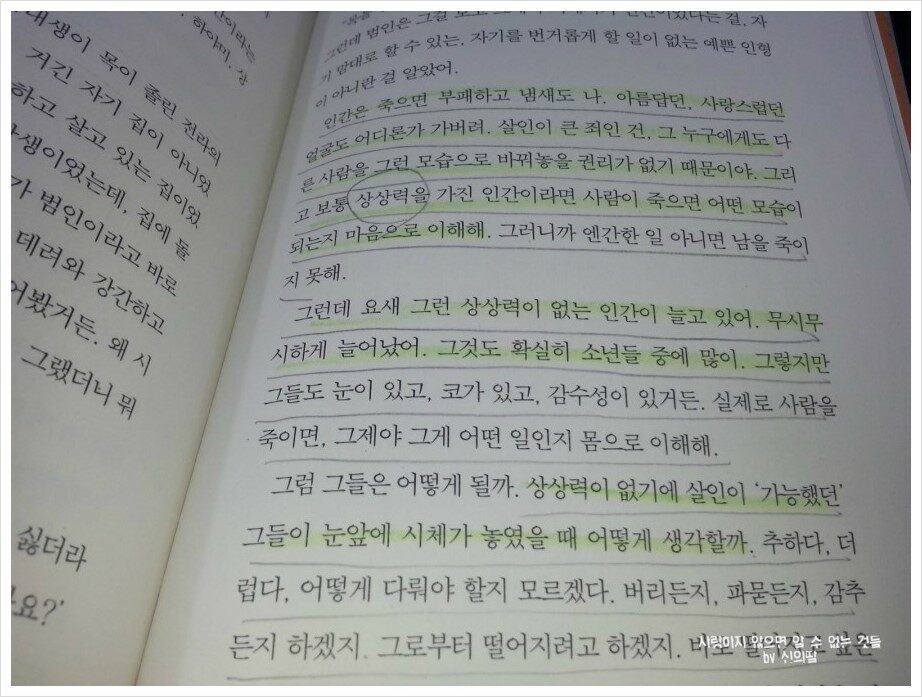 간이라는
하이미. 상
대생이 목이 졸린 전라의
거긴 자기 집이 아니었
하고 살고 있는 집이었
생이었는데, 집에 돌
가 범인이라고 바로
데려와 강간하고
어봤거든. 왜 시
그랬더니 뭐
싫더라
요?'
그런데 범인은 그걸 보고
인간이었다는 걸, 자
기 맘대로 할 수 있는, 자기를 번거롭게 할 일이 없는 예쁜 인형
이 아니란 걸 알았어.
인간은 죽으면 부패하고 냄새도 나. 아름답던, 사랑스럽던
얼굴도 어디론가 가버려. 살인이 큰 죄인 건, 그 누구에게도 다
른 사람을 그런 모습으로 바꿔놓을 권리가 없기 때문이야. 그리
고 보통 상상력을 가진 인간이라면 사람이 죽으면 어떤 모습이
되는지 마음으로 이해해. 그러니까 엔간한 일 아니면 남을 죽이
지 못해.
그런데 요새 그런 상상력이 없는 인간이 늘고 있어. 무시무
시하게 늘어났어. 그것도 확실히 소년들 중에 많이. 그렇지만
그들도 눈이 있고, 코가 있고, 감수성이 있거든. 실제로 사람을
죽이면, 그제야 그게 어떤 일인지 몸으로 이해해.
그럼 그들은 어떻게 될까. 상상력이 없기에 살인이 '가능했던'
그들이 눈앞에 시체가 놓였을 때 어떻게 생각할까. 추하다, 더
럽다, 어떻게 다뤄야 할지 모르겠다. 버리든지, 파묻든지, 감추
든지 하겠지. 그로부터 떨어지려고 하겠지.
사랑하지 않으면 알 수 없는 것들
by 신의딸